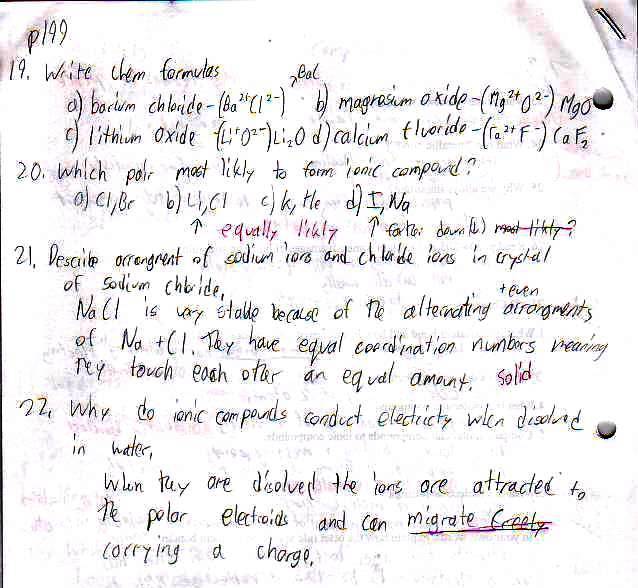 p199
19. Write chem formulas
BaC
a) barium chloride - (Ba²⁺Cl²⁻) b) magnesium oxide - (Mg²⁺O²⁻) MgO
c) lithium oxide (Li⁺O²⁻) Li₂O d) calcium fluoride - (Ca²⁺F⁻) CaF₂
20. Which pair most likely to form ionic compound?
a) Cl, Br b) Li, Cl c) K, He d) I, Na
↑ equally likely ↑ farther down (b) most likly?
21. Describe arrangment of sodium ions and chloride ions in crystal
of sodium chloride,
+ even
NaCl is very stable because of the alternating arrangments
of Na + Cl. They have equal coordination numbers meaning
they touch each other an equal amount. solid
22, Why do ionic compounds conduct electricty when disolved
in water,
When they are disolved the ions are attracted to
the polar electroids and can migrate freely
carrying a charge.